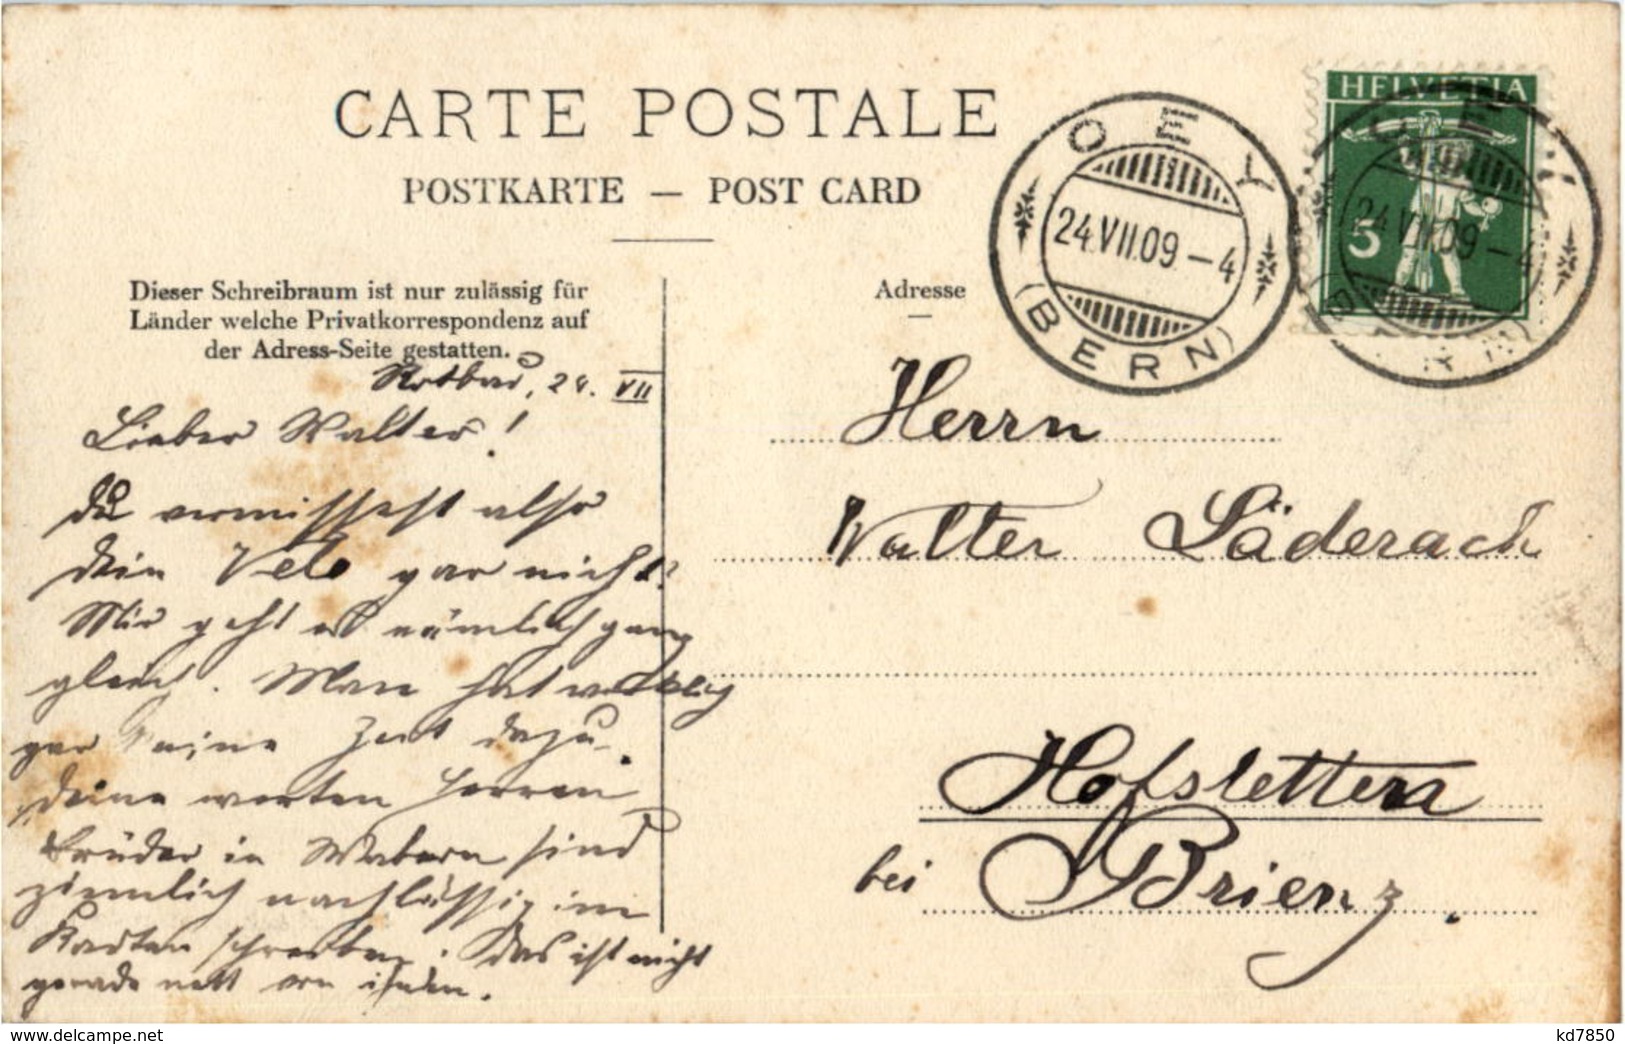 CARTE POSTALE
POSTKARTE — POST CARD
Dieser Schreibraum ist nur zulässig für
Länder welche Privatkorrespondenz auf
der Adress-Seite gestatten.
Adresse
OEY
24.VII.09 – 4
(BERN)
HELVETIA
5
OEY
24.VII.09 – 4
(BERN)
Rotbad, 24. VII
Lieber Walter!
Du vermissest also
dein Velo gar nicht?
Mir geht es nämlich ganz
gleich. Man hat
gar keine Zeit dazu.
Deine werten Herren
Brüder in Wabern sind
ziemlich nachlässig im
Karten schreiben. Das ist nicht
gerade nett von ihnen.
Herrn
Walter Läderach
Hofstetten
bei Brienz.
www.delcampe.net
kd7850